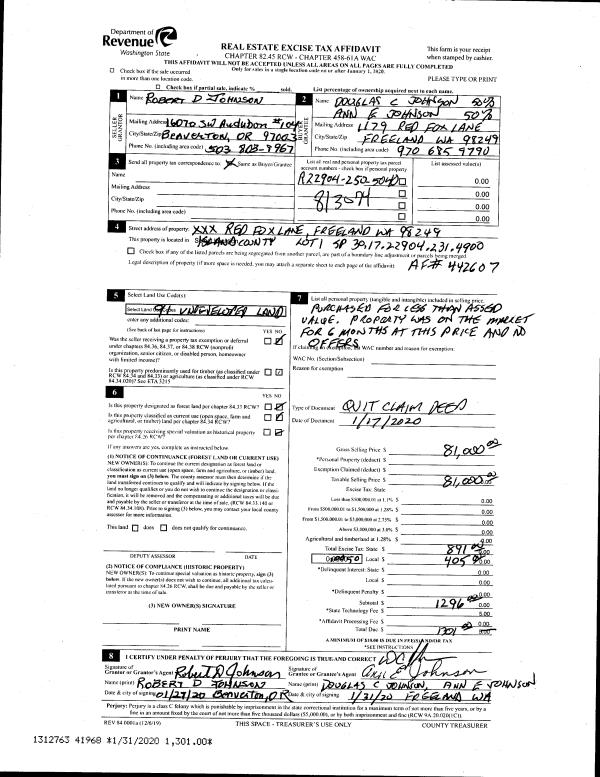 Department of
Revenue
Washington State
REAL ESTATE EXCISE TAX AFFIDAVIT
CHAPTER 82.45 RCW - CHAPTER 458-61A WAC
THIS AFFIDAVIT WILL NOT BE ACCEPTED UNLESS ALL AREAS ON ALL PAGES ARE FULLY COMPLETED
Only for sales in a single location code on or after January 1, 2020.
This form is your receipt
when stamped by cashier.
PLEASE TYPE OR PRINT
Check box if the sale occurred
in more than one location code.
Check box if partial sale, indicate % sold.
List percentage of ownership acquired next to each name.
1 Name ROBERT D JOHNSON
SELLER
GRANTOR
Mailing Address 16070 SW AUDUBON #104
City/State/Zip BEAVERTON, OR 97003
Phone No. (including area code) 503 803-8967
2 Name DOUGLAS C JOHNSON 50%
ANN E JOHNSON 50%
BUYER
GRANTEE
Mailing Address 1179 RED FOX LANE
City/State/Zip FREELAND WA 98249
Phone No. (including area code) 970 685 9790
3 Send all property tax correspondence to: Same as Buyer/Grantee
Name
Mailing Address
City/State/Zip
Phone No. (including area code)
List all real and personal property tax parcel
account numbers - check box if personal property
R22904-250-5040
813094
List assessed value(s)
0.00
0.00
0.00
0.00
4 Street address of property: XXX RED FOX LANE, FREELAND WA 98249
This property is located in ISLAND COUNTY LOT 1 SP 30.17.22904.231.4900
Check box if any of the listed parcels are being segregated from another parcel, are part of a boundary line adjustment or parcels being merged.
Legal description of property (if more space is needed, you may attach a separate sheet to each page of the affidavit) AF# 442607
5 Select Land Use Code(s):
Select Land 91 - UNDEVELOPED LAND
enter any additional codes:
(See back of last page for instructions)
YES NO
Was the seller receiving a property tax exemption or deferral
under chapters 84.36, 84.37, or 84.38 RCW (nonprofit
organization, senior citizen, or disabled person, homeowner
with limited income)?
Is this property predominantly used for timber (as classified under
RCW 84.34 and 84.33) or agriculture (as classified under RCW
84.34.020)? See ETA 3215
6
YES NO
Is this property designated as forest land per chapter 84.33 RCW?
Is this property classified as current use (open space, farm and
agricultural, or timber) land per chapter 84.34 RCW?
Is this property receiving special valuation as historical property
per chapter 84.26 RCW?
If any answers are yes, complete as instructed below.
(1) NOTICE OF CONTINUANCE (FOREST LAND OR CURRENT USE)
NEW OWNER(S): To continue the current designation as forest land or
classification as current use (open space, farm and agriculture, or timber) land,
you must sign on (3) below. The county assessor must then determine if the
land transferred continues to qualify and will indicate by signing below. If the
land no longer qualifies or you do not wish to continue the designation or classi-
fication, it will be removed and the compensating or additional taxes will be due
and payable by the seller or transferor at the time of sale. (RCW 84.33.140 or
RCW 84.34.108). Prior to signing (3) below, you may contact your local county
assessor for more information.
This land does does not qualify for continuance.
DEPUTY ASSESSOR DATE
(2) NOTICE OF COMPLIANCE (HISTORIC PROPERTY)
NEW OWNER(S): To continue special valuation as historic property, sign (3)
below. If the new owner(s) does not wish to continue, all additional tax calcu-
lated pursuant to chapter 84.26 RCW, shall be due and payable by the seller or
transferor at the time of sale.
(3) NEW OWNER(S) SIGNATURE
PRINT NAME
7 List all personal property (tangible and intangible) included in selling price.
PURCHASED FOR LESS THAN ASSED
VALUE. PROPERTY WAS ON THE MARKET
FOR 6 MONTHS AT THIS PRICE AND NO
OFFERS
If claiming an exemption, list WAC number and reason for exemption:
WAC No. (Section/Subsection)
Reason for exemption
Type of Document QUIT CLAIM DEED
Date of Document 1/17/2020
Gross Selling Price $ 81,000.00
*Personal Property (deduct) $
Exemption Claimed (deduct) $
Taxable Selling Price $ 81,000.00
Excise Tax: State
Less than $500,000.01 at 1.1% $ 0.00
From $500,000.01 to $1,500,000 at 1.28% $ 0.00
From $1,500,000.01 to $3,000,000 at 2.75% $ 0.00
Above $3,000,000 at 3.0% $ 0.00
Agricultural and timberland at 1.28% $ 0.00
Total Excise Tax: State $ 891.00
0.0050 Local $ 405.00
*Delinquent Interest: State $ 0.00
Local $ 0.00
*Delinquent Penalty $ 0.00
Subtotal $ 1296.00
*State Technology Fee $ 5.00
*Affidavit Processing Fee $
Total Due $ 1301.00
A MINIMUM OF $10.00 IS DUE IN FEE(S) AND/OR TAX
*SEE INSTRUCTIONS
8 I CERTIFY UNDER PENALTY OF PERJURY THAT THE FOREGOING IS TRUE AND CORRECT
Signature of
Grantor or Grantor's Agent Robert D Johnson
Name (print) ROBERT D JOHNSON
Date & city of signing 01/27/20 BEAVERTON, OR
Signature of
Grantee or Grantee's Agent Ann E Johnson
Name (print) DOUGLAS C JOHNSON, ANN E JOHNSON
Date & city of signing 1/31/20 FREELAND WA
Perjury: Perjury is a class C felony which is punishable by imprisonment in the state correctional institution for a maximum term of not more than five years, or by a
fine in an amount fixed by the court of not more than five thousand dollars ($5,000.00), or by both imprisonment and fine (RCW 9A.20.020(1C)).
REV 84 0001a (12/6/19)
THIS SPACE - TREASURER'S USE ONLY
COUNTY TREASURER
1312763 41968 *1/31/2020 1,301.00*